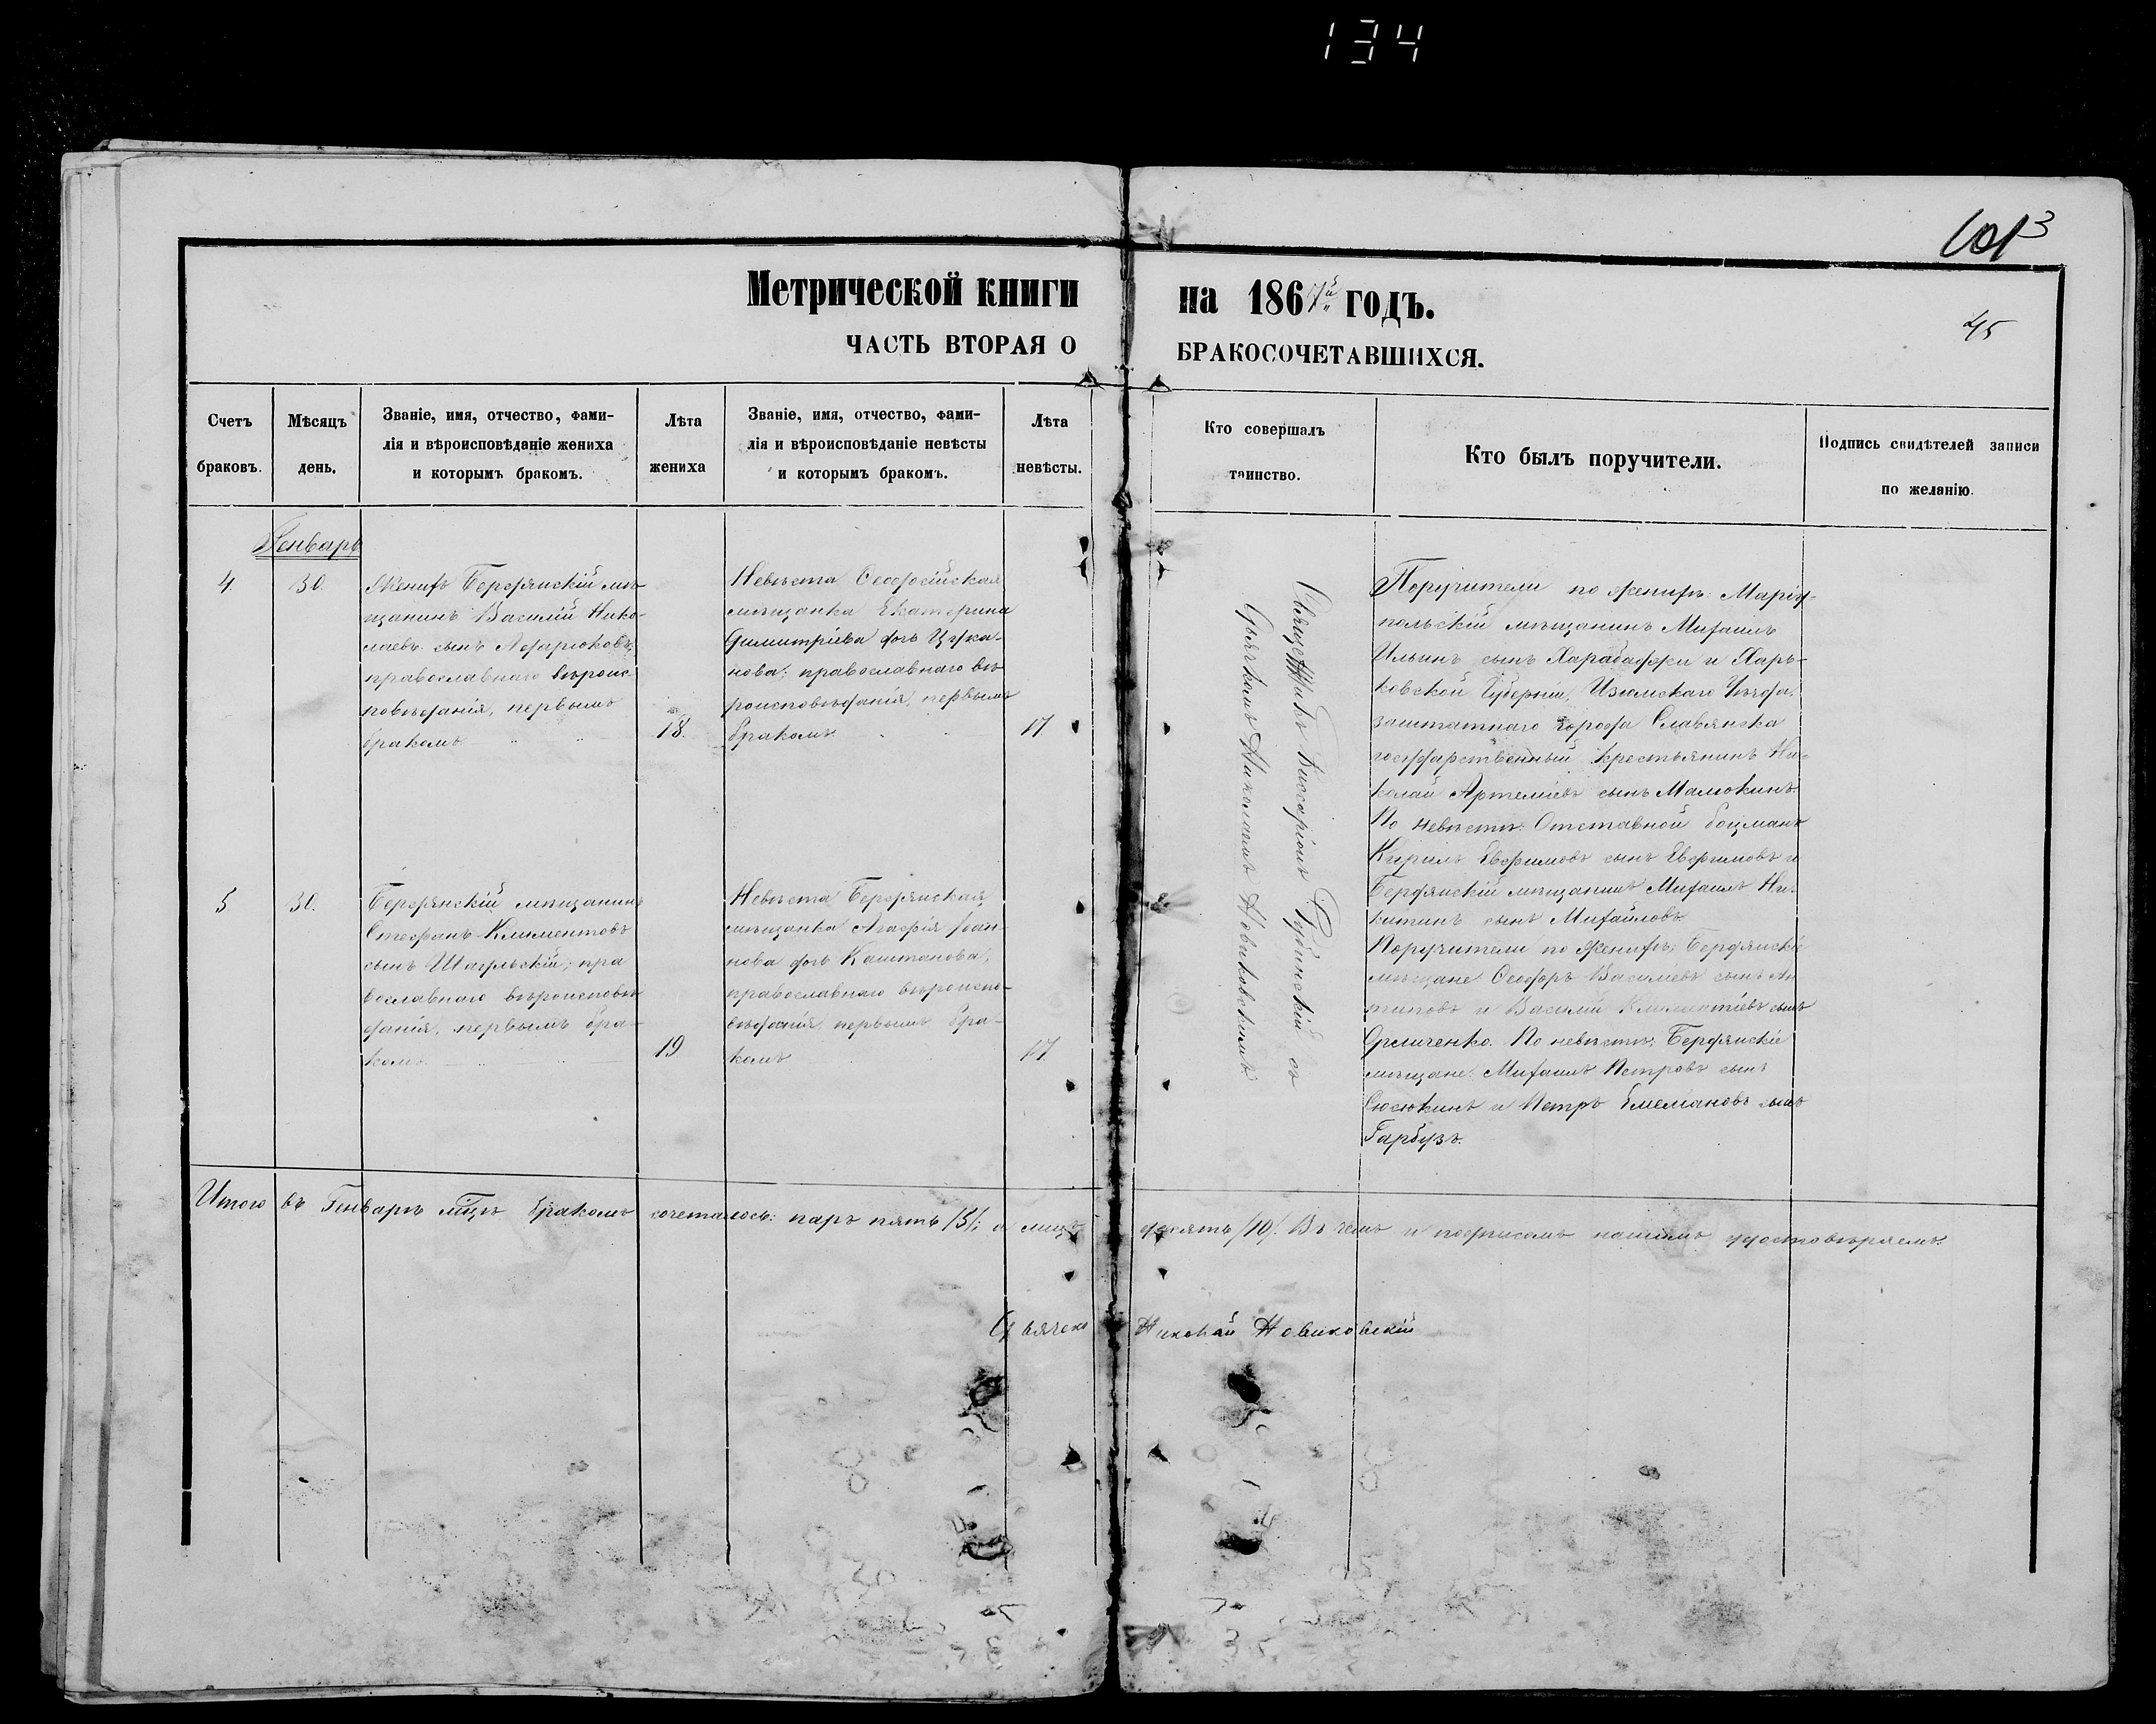 134
45
Метрической книги на 1867й годъ.
ЧАСТЬ ВТОРАЯ О БРАКОСОЧЕТАВШИХСЯ.
Счетъ браковъ.
Мѣсяцъ день.
Званіе, имя, отчество, фами-
лія и вѣроисповѣданіе жениха
и которымъ бракомъ.
Лѣта жениха
Званіе, имя, отчество, фами-
лія и вѣроисповѣданіе невѣсты
и которымъ бракомъ.
Лѣта невѣсты.
Кто совершалъ
таинство.
Кто былъ поручители.
Подпись свидѣтелей записи
по желанію.
Генварь
4.
30.
Женихъ Бердянскій мѣ-
щанинъ Василій Нико-
лаевъ сынъ
православнаго вѣроис-
повѣданія, первымъ
бракомъ.
18.
Невѣста Ѳеодосійская
мѣщанка Екатерина
Димитріева дочь Цука-
нова; православнаго вѣ-
роисповѣданія, первымъ
бракомъ.
17
Священникъ Виссаріонъ Рубинскій съ
Дьячкомъ Николаемъ Новиковскимъ
Поручители по женихѣ: Маріу-
польскій мѣщанинъ Михаилъ
Ильинъ сынъ Харабаджи и Харь-
ковской Губерніи, Изюмскаго Уѣзда,
заштатнаго города Славянска
государственный крестьянинъ Ни-
колай Артеміевъ сынъ Малюкинъ.
По невѣстѣ: Отставной боцманъ
Кирилъ Евфимовъ сынъ Евфимовъ и
Бердянскій мѣщанинъ Михаилъ Ни-
китинъ сынъ Михайловъ.
5
30.
Бердянскій мѣщанинъ
Стефанъ Климентовъ
сынъ Шагульскій; пра
вославнаго вѣроисповѣ
данія, первымъ бра-
комъ.
19
Невѣста Бердянская
мѣщанка Агафія Іоан-
нова дочь Каштанова;
православнаго вѣроиспо-
вѣданія, первымъ бра-
комъ
17
Поручители по женихѣ: Бердянскіе
мѣщане Ѳеодоръ Василіевъ сынъ Ан
типовъ и Василій Климентіевъ сынъ
По невѣстѣ: Бердянскіе
мѣщане: Михаилъ Петровъ сынъ
Сюсюкинъ и Петръ сынъ
Гарбузъ.
Итого въ Генварѣ мцѣ бракомъ сочеталось: паръ пять /5/; а лицъ десять /10/. Въ чемъ и подписомъ нашимъ удостовѣряемъ.
Дьячекъ Николай Новиковскій